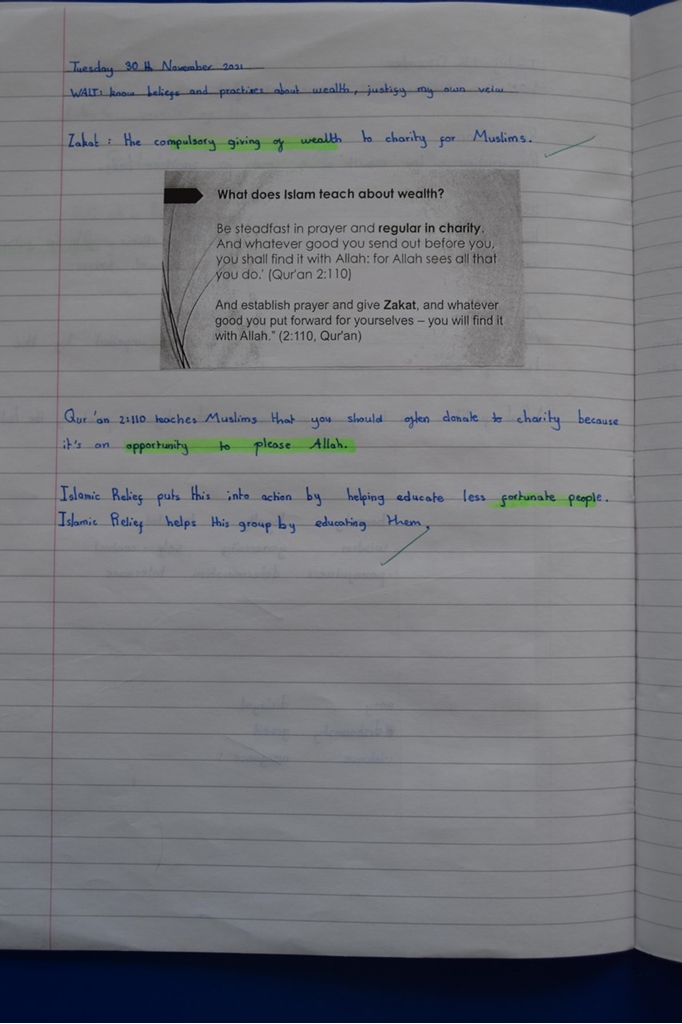 Tuesday 30th November 2021
WALT: know beliefs and practises about wealth, justify my own veiw
Zakat : the compulsory giving of wealth to charity for Muslims.
What does Islam teach about wealth?
Be steadfast in prayer and regular in charity.
And whatever good you send out before you,
you shall find it with Allah: for Allah sees all that
you do.' (Qur'an 2:110)
And establish prayer and give Zakat, and whatever
good you put forward for yourselves – you will find it
with Allah." (2:110, Qur'an)
Qur'an 2:110 teaches Muslims that you should often donate to charity because
it's an opportunity to please Allah.
Islamic Relief puts this into action by helping educate less fortunate people.
Islamic Relief helps this group by educating them.